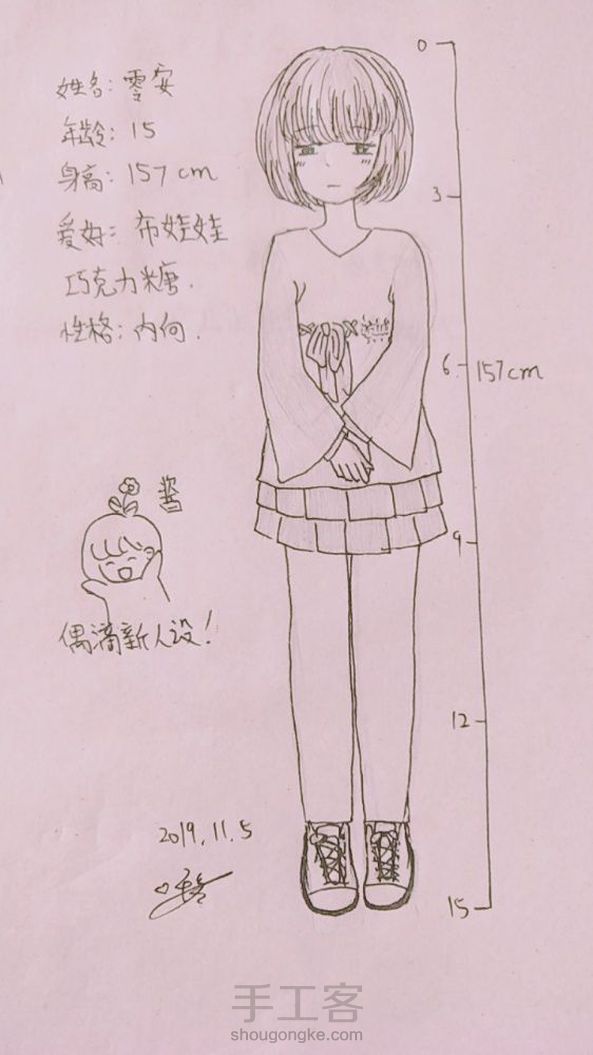 姓名：零安
年龄：15
身高：157cm
爱好：布娃娃
巧克力糖.
性格：内向.
0
3
6
157cm
9
12
15
酱
偶滴新人设！
2019.11.5
手工客
shougongke.com